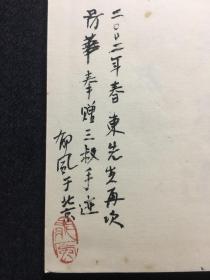 二〇〇二年春 東先生再次
芳華奉贈三叔手迹
郁风于北京